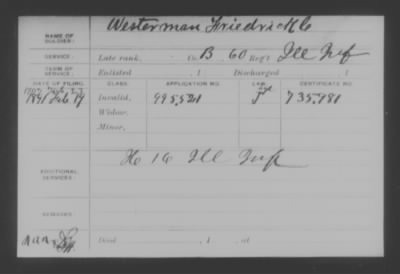 NAME OF SOLDIER: Westerman Friedrich C
SERVICE: Late rank, Co. B 60 Reg't Ill Inf
TERM OF SERVICE: Enlisted , 1 Discharged , 1
DATE OF FILING. CLASS. APPLICATION NO. LAW. CERTIFICATE NO.
1891 Feb 19 Invalid, 995,521 735,981
Widow,
Minor,
ADDITIONAL SERVICES: H 16 Ill Inf
REMARKS:
Died , 1 , at